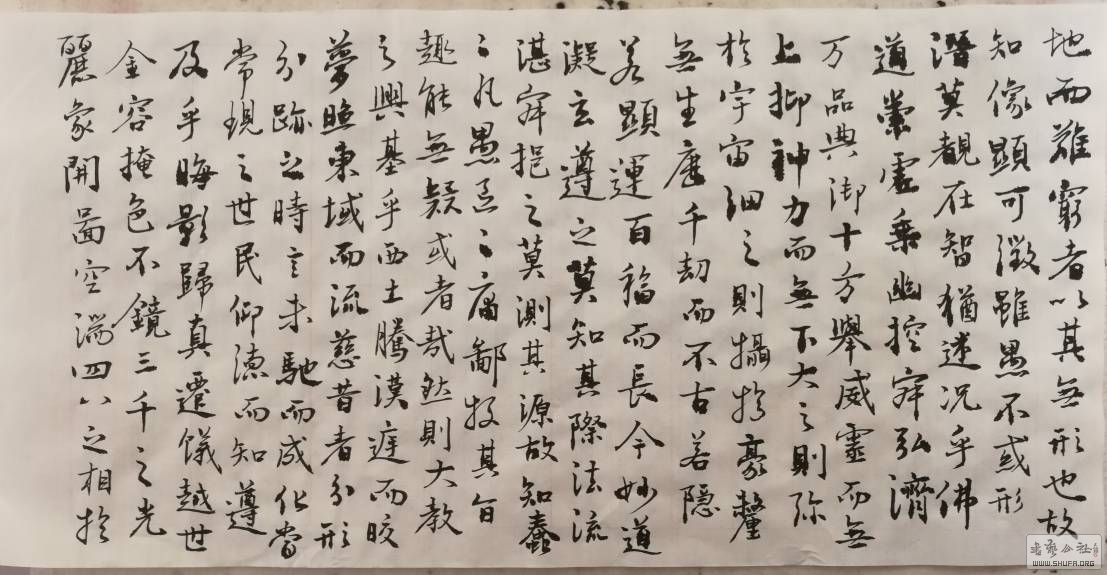 地而難窮者以其無形也故
知像顯可徵雖愚不惑形
潛莫覩在智猶迷況乎佛
道崇虛乘幽控寂弘濟
万品典御十方舉威靈而無
上抑神力而無下大之則弥
於宇宙細之則攝於豪釐
無生歷千劫而不古若隱
若顯運百福而長今妙道
凝玄遵之莫知其際法流
湛寂挹之莫測其源故知蠢
々凡愚區々庸鄙投其旨
趣能無疑或者哉然則大教
之興基乎西土騰漢庭而皎
夢照東域而流慈昔者分形
分跡之時言未馳而成化當
常現之世民仰德而知遵
及乎晦影歸真遷儀越世
金容掩色不鏡三千之光
麗象開圖空端四八之相於
书艺公社
WWW.SHUFA.ORG